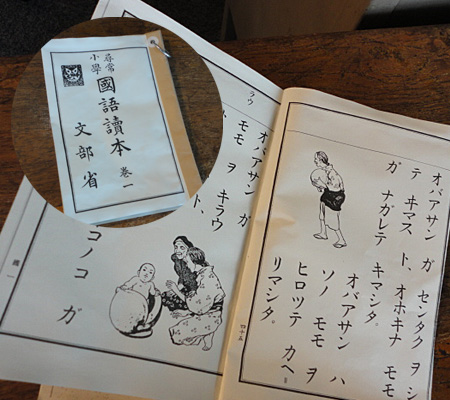 尋常
小學
國語讀本 卷一
文部省
オバアサン ガ センタク ヲ シ
テ キマス ト、オホキナ モモ
ガ ナガレテ キマシタ。
オバアサン ハ
ソノ モモ ヲ
ヒロツテ カヘ
リマシタ。
四十五
ラウ
オバアサン ガ
モモ ヲ キラウ
ト、
コノコ ガ